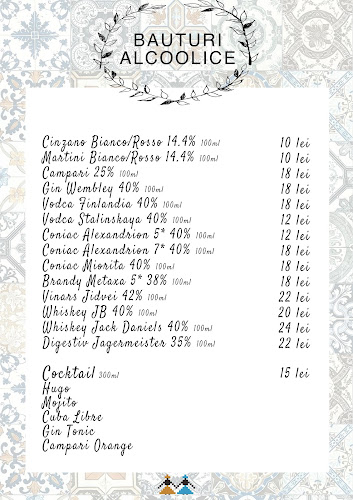 BAUTURI
ALCOOLICE
Cinzano Bianco/Rosso 14.4% 100ml 10 lei
Martini Bianco/Rosso 14.4% 100ml 10 lei
Campari 25% 100ml 18 lei
Gin Wembley 40% 100ml 18 lei
Vodca Finlandia 40% 100ml 18 lei
Vodca Stalinskaya 40% 100ml 12 lei
Coniac Alexandrion 5* 40% 100ml 12 lei
Coniac Alexandrion 7* 40% 100ml 18 lei
Coniac Miorita 40% 100ml 18 lei
Brandy Metaxa 5* 38% 100ml 18 lei
Vinars Jidvei 42% 100ml 22 lei
Whiskey JB 40% 100ml 20 lei
Whiskey Jack Daniels 40% 100ml 24 lei
Digestiv Jagermeister 35% 100ml 22 lei
Cocktail 300ml 15 lei
Hugo
Mojito
Cuba Libre
Gin Tonic
Campari Orange